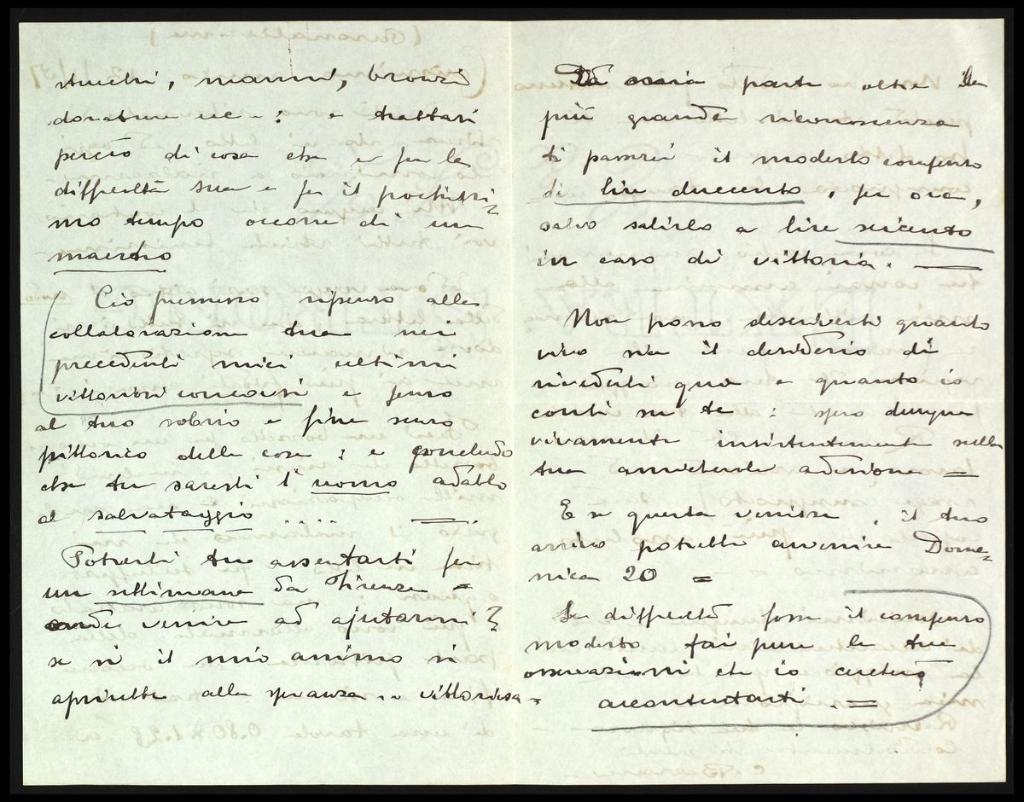 stucchi, marmi, bronzi
dorature ecc : e trattasi
perciò di cosa che e per le
difficoltà sue e per il pochissi-
mo tempo occorre di un
maestro
Ciò premesso ripenso alla
collaborazione tua nei
precedenti miei ultimi
vittoriosi concorsi e penso
al tuo sobrio e fine senso
pittorico delle cose : e concludo
che tu saresti l'uomo adatto
al salvataggio ...
Potresti tu assentarti per
un settimana da Firenze
onde venire ad ajutarmi?
se si il mio animo si
aprirebbe alla speranza .. vittoriosa.
Da mia parte oltre la
più grande riconoscenza
ti passerei il modesto compenso
di lire duecento, per ora,
salvo salirlo a lire seicento
in caso di vittoria. —
Non posso descriverti quanto
vivo sia il desiderio di
rivederti qua e quanto io
conti su te : spero dunque
vivamente insistentemente nella
tua amichevole adesione —
E se questa venisse, il tuo
arrivo potrebbe avvenire Dome-
nica 20 =
Se difficoltà fosse il compenso
modesto fai pure le tue
osservazioni che io cercherò
accontentarti . =